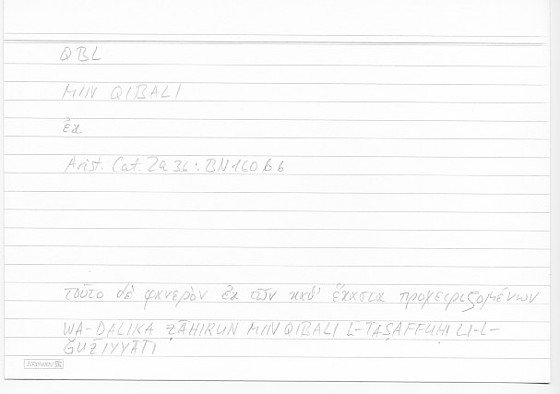 QBL
MIN QIBALI
ἐκ
Arist. Cat. 2a36: BN160b6
τοῦτο δὲ φανερὸν ἐκ τῶν καθ' ἕκαστα προχειριζομένων
WA-DALIKA ẒĀHIRUN MIN QIBALI L-TAṢAFFUḤI LI-L-
ǦUZʾIYYĀTI